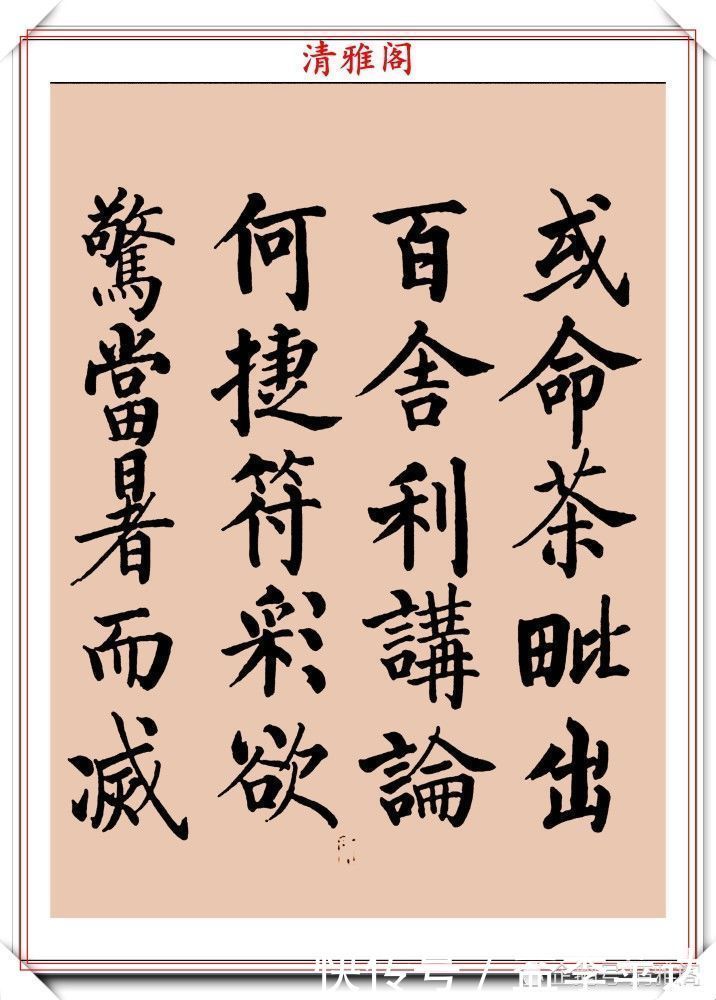 清雅阁
或命茶毗出
百舍利講論
何捷符彩欲
驚當暑而滅
快传号/